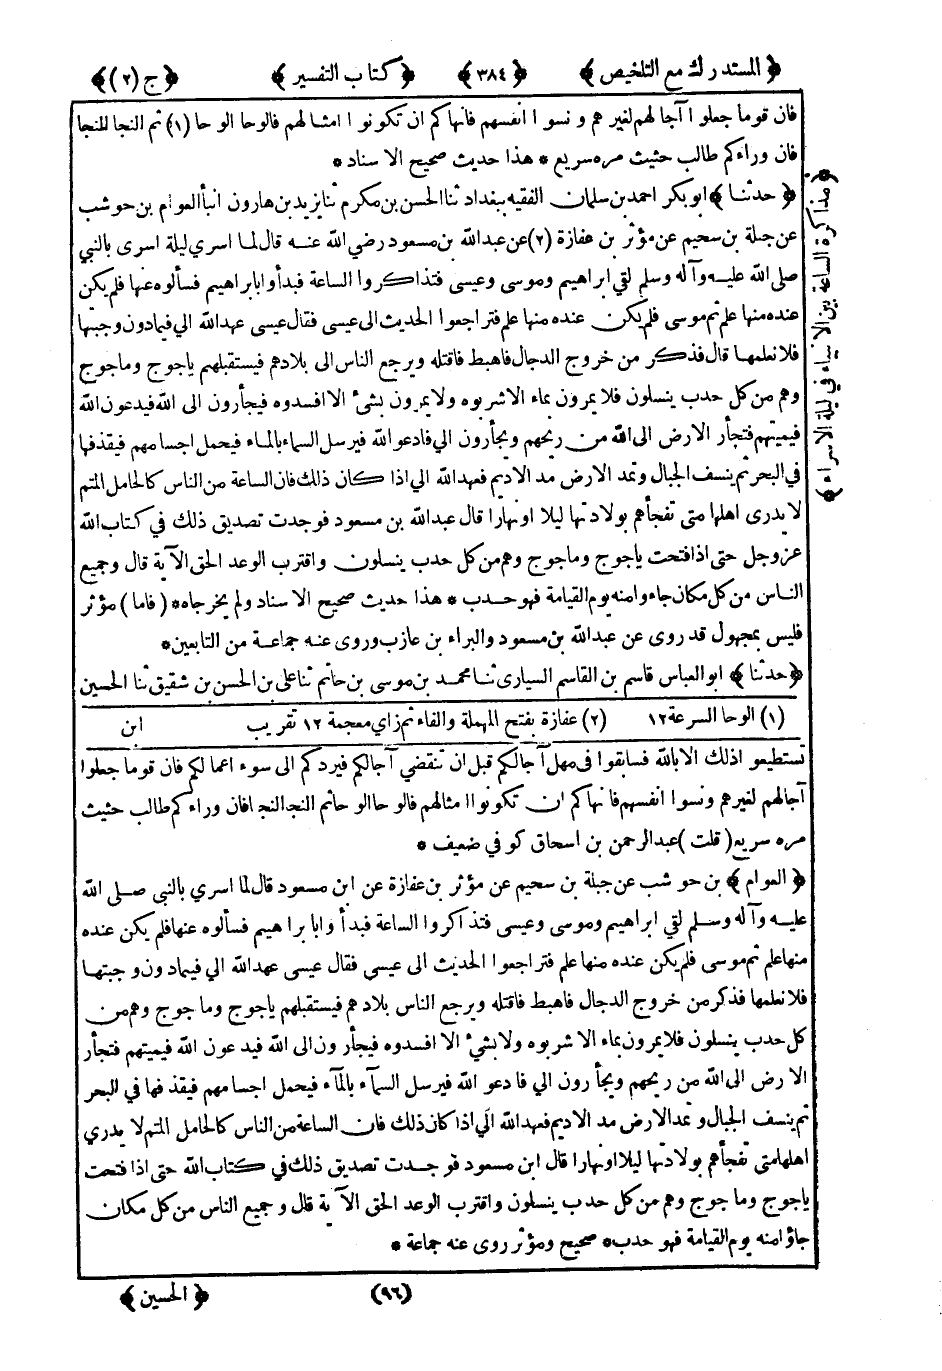 ﴿ المستدرك مع التلخيص ﴾ ﴿ ٣٨٤ ﴾ ﴿ كتاب التفسير ﴾ ﴿ ج (٢) ﴾
فان قوما جعلوا آجالهم لغيرهم ونسوا انفسهم فانهاكم ان تكونوا امثالهم فالوحا الوحا (١) ثم النجا النجا
فان وراءكم طالب حثيث مره سريع * هذا حديث صحيح الاسناد *
﴿ حدثنا ﴾ ابو بكر احمد بن سلمان الفقيه ببغداد ثنا الحسن بن مكرم ثنا يزيد بن هارون انبأ العوام بن حوشب
عن جبلة بن سحيم عن مؤثر بن عفازة (٢) عن عبدالله بن مسعود رضي الله عنه قال لما اسري ليلة اسرى بالنبي
صلى الله عليه وآله وسلم لقي ابراهيم وموسى وعيسى فتذاكروا الساعة فبدأوا بابراهيم فسألوه عنها فلم يكن
عنده منها علم ثم موسى فلم يكن عنده منها علم فتراجعوا الحديث الى عيسى فقال عيسى عهد الله الي فيما دون وجبتها
فلا نعلمها قال فذكر من خروج الدجال فاهبط فاقتله ويرجع الناس الى بلادهم فيستقبلهم ياجوج وماجوج
وهم من كل حدب ينسلون فلا يمرون بماء الا شربوه ولا يمرون بشئ الا افسدوه فيجأرون الى الله فيدعون الله
فيميتهم فتجأر الارض الى الله من ريحهم ويجأرون الي فادعو الله فيرسل السماء بالماء فيحمل اجسامهم فيقذفها
في البحر ثم ينسف الجبال وتمد الارض مد الاديم فعهد الله الي اذا كان ذلك فان الساعة من الناس كالحامل المتم
لا يدرى اهلها متى تفجأهم بولادتها ليلا او نهارا قال عبدالله بن مسعود فوجدت تصديق ذلك في كتاب الله
عز وجل حتى اذا فتحت ياجوج وماجوج وهم من كل حدب ينسلون واقترب الوعد الحق الآية قال وجميع
الناس من كل مكان جاءوا منه يوم القيامة فهو حدب * هذا حديث صحيح الاسناد ولم يخرجاه * ( فاما ) مؤثر
فليس بمجهول قد روى عن عبدالله بن مسعود والبراء بن عازب وروى عنه جماعة من التابعين *
﴿ حدثنا ﴾ ابو العباس قاسم بن القاسم السيارى ثنا محمد بن موسى بن حاتم ثنا على بن الحسن بن شقيق ثنا الحسين
﴿ مذاكرة الساعة بين الانبياء في ليلة الاسراء ﴾
(١) الوحا السرعة ١٢ (٢) عفازة بفتح المهملة والفاء ثم زاي معجمة ١٢ تقريب ابن
تستطيعوا ذلك الا بالله فسابقوا فى مهل آجالكم قبل ان تنقضي آجالكم فيردكم الى سوء اعمالكم فان قوما جعلوا
آجالهم لغيرهم ونسوا انفسهم فانهاكم ان تكونوا امثالهم فالوحا الوحا ثم النجا النجا فان وراءكم طالب حثيث
مره سريع ( قلت ) عبدالرحمن بن اسحاق كوفي ضعيف *
﴿ العوام ﴾ بن حوشب عن جبلة بن سحيم عن مؤثر بن عفازة عن ابن مسعود قال لما اسري بالنبي صلى الله
عليه وآله وسلم لقي ابراهيم وموسى وعيسى فتذاكروا الساعة فبدأوا بابراهيم فسألوه عنها فلم يكن عنده
منها علم ثم موسى فلم يكن عنده منها علم فتراجعوا الحديث الى عيسى فقال عيسى عهد الله الي فيما دون وجبتها
فلا نعلمها فذكر من خروج الدجال فاهبط فاقتله ويرجع الناس بلادهم فيستقبلهم ياجوج وماجوج وهم من
كل حدب ينسلون فلا يمرون بماء الا شربوه ولا بشئ الا افسدوه فيجأرون الى الله فيدعون الله فيميتهم فتجأر
الارض الى الله من ريحهم ويجأرون الي فادعو الله فيرسل السمآء بالمآء فيحمل اجسامهم فيقذفها في البحر
ثم ينسف الجبال وتمد الارض مد الاديم فعهد الله الي اذا كان ذلك فان الساعة من الناس كالحامل المتم لا يدري
اهلها متى تفجأهم بولادتها ليلا او نهارا قال ابن مسعود فوجدت تصديق ذلك في كتاب الله حتى اذا فتحت
ياجوج وماجوج وهم من كل حدب ينسلون واقترب الوعد الحق الآية قال وجميع الناس من كل مكان
جاؤا منه يوم القيامة فهو حدب * صحيح ومؤثر روى عنه جماعة *
(٩٦) ﴿ الحسين ﴾